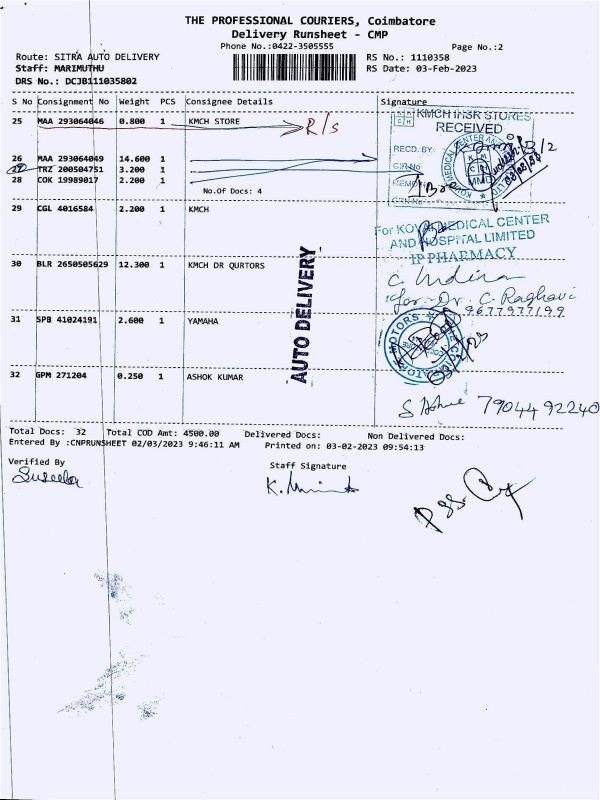 THE PROFESSIONAL COURIERS, Coimbatore
Delivery Runsheet - CMP
Phone No.:0422-3505555
Page No.:2
Route: SITRA AUTO DELIVERY
RS No.: 1110358
Staff: MARIMUTHU
RS Date: 03-Feb-2023
DRS No.: DCJB111035802
S No Consignment No Weight PCS Consignee Details Signature
25 MAA 293064046 0.800 1 KMCH STORE R/s
KMCH STORES
RECEIVED
RECD. BY
26 MAA 293064049 14.600 1
27 TRZ 200504751 3.200 1
28 COK 19989017 2.200 1
No.Of Docs: 4
29 CGL 4016584 2.200 1 KMCH
For KOVAI MEDICAL CENTER
AND HOSPITAL LIMITED
IP PHARMACY
30 BLR 2650505629 12.300 1 KMCH DR QURTORS
C Indira
for Dr. C. Raghavi
9677977199
AUTO DELIVERY
31 SPB 41024191 2.600 1 YAMAHA
MOTORS
32 GPM 271204 0.250 1 ASHOK KUMAR
79044 92240
Total Docs: 32 Total COD Amt: 4500.00 Delivered Docs: Non Delivered Docs:
Entered By :CNPRUNSHEET 02/03/2023 9:46:11 AM Printed on: 03-02-2023 09:54:13
Verified By
Staff Signature
Suseela